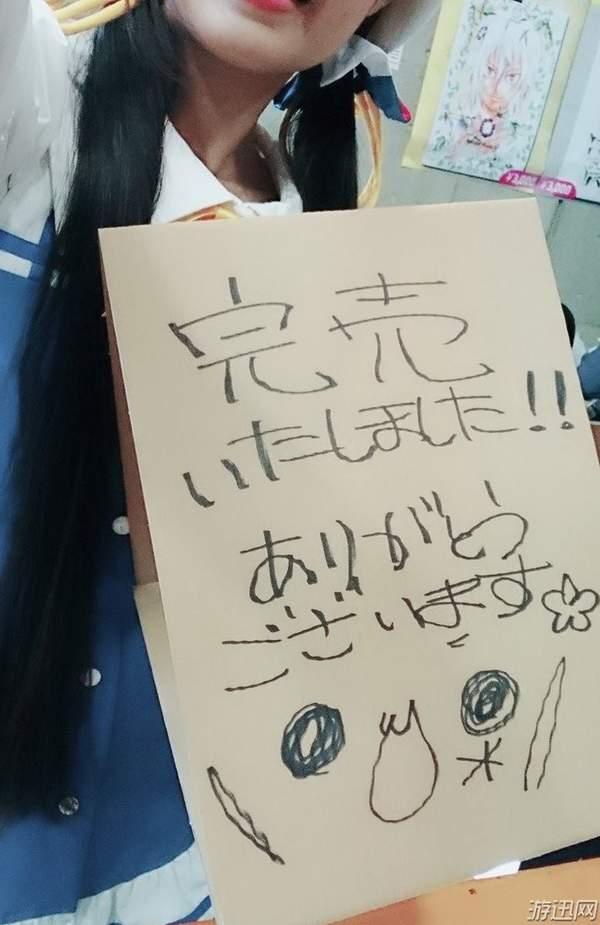 完売
いたしました!!
ありがとう
ございます
¥3,000
¥3,000
游迅网